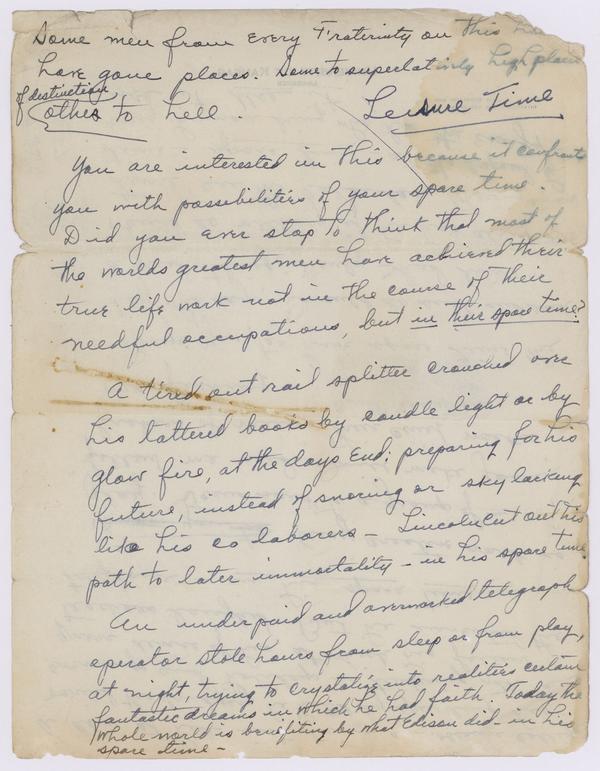 Some men from every Fraternity on this
have gone places. Some to superlatively high plain
of distinction
others to hell.
Leisure Time
You are interested in this because it confronts
you with possibilities of your spare time.
Did you ever stop to think that most of
the worlds greatest men have achieved their
true life work not in the course of their
needful occupations, but in their spare time?
A tired out rail splitter crouched over
his tattered books by candle light or by
glow fire, at the days end; preparing for his
future, instead of snoring or sky larking
like his co laborers - Lincoln cut out his
path to later immortality - in his spare time
An underpaid and overworked telegraph
operator stole hours from sleep or from play,
at night, trying to crystalize into realities certain
fantastic dreams in which he had faith. Today the
whole world is benefiting by what Edison did - in his
spare time -